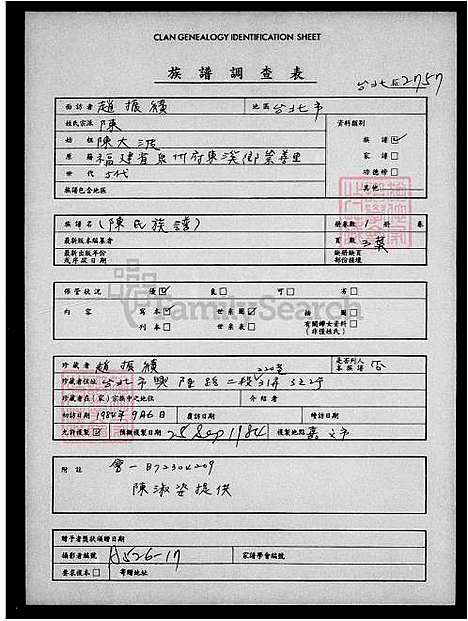 CLAN GENEALOGY IDENTIFICATION SHEET
族譜調查表
台北區2757
面訪者 趙振績 地區 台北市
姓氏宗派 陳 資料類別
始祖 陳大 族譜 ✓
原籍 福建省泉州府東溪鄉崇善里 家譜
世代 5代 功德榜
族譜包含地區 其他
族譜名 (陳氏族譜) 冊卷數 1 冊 卷
最新版本編纂者 頁數 葉
最新出版年份 缺冊缺頁
或序跋日期 部份損壞
保管狀況 優 ✓ 良 可 劣
內容 寫本 ✓ 世系圖 ✓ 插圖
刊本 世系表 有關婦女資料
(非僅姓氏)
FamilySearch
珍藏者 趙振績 是否列入本族譜 否
珍藏者住址 台北市興隆路二段220巷31弄32號
珍藏者在(家)宗族中之地位 介紹者
初訪日期 1984年9月6日 覆訪日期 特訪日期
允許複製 ✓ 預擬複製日期 28 Sep 1984 複製地點 嘉文市
附註 會一B72304209
陳淑姿提供
贈予者獎狀頒贈日期
攝影者編號 HS26-17 家譜學會編號
要求複本 寄贈地址